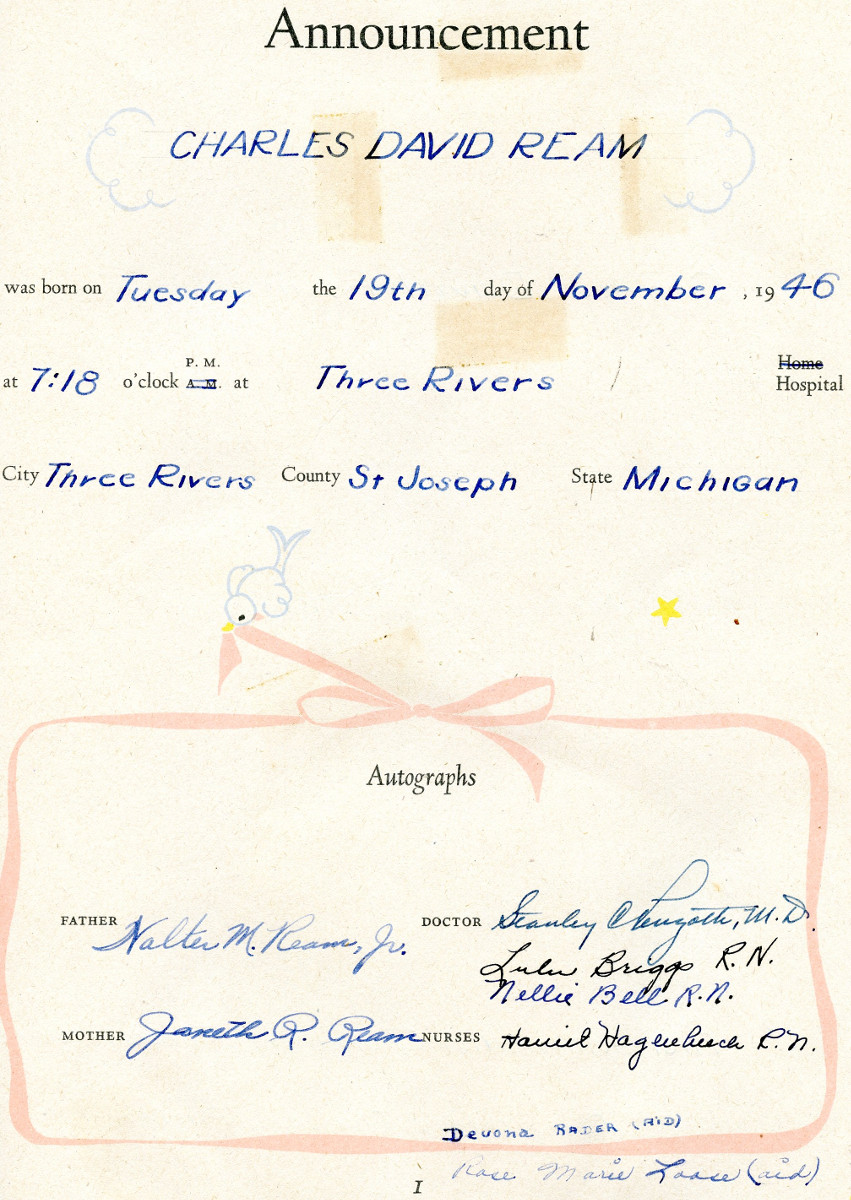 Announcement
CHARLES DAVID REAM
was born on Tuesday the 19th day of November, 1946
P. M. Home
at 7:18 o'clock A. M. at Three Rivers Hospital
City Three Rivers County St Joseph State Michigan
Autographs
FATHER Walter M. Ream, Jr. DOCTOR Stanley C. M.D.
Lulu Briggs R. N.
Nellie Bell R. N.
MOTHER Janeth R. Ream NURSES Hagenbuch R. N.
Devona RADER (AID)
Rose Marie Loose (aid)
1